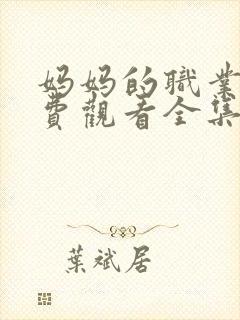 妈妈的職業
費觀看全集
葉斌居